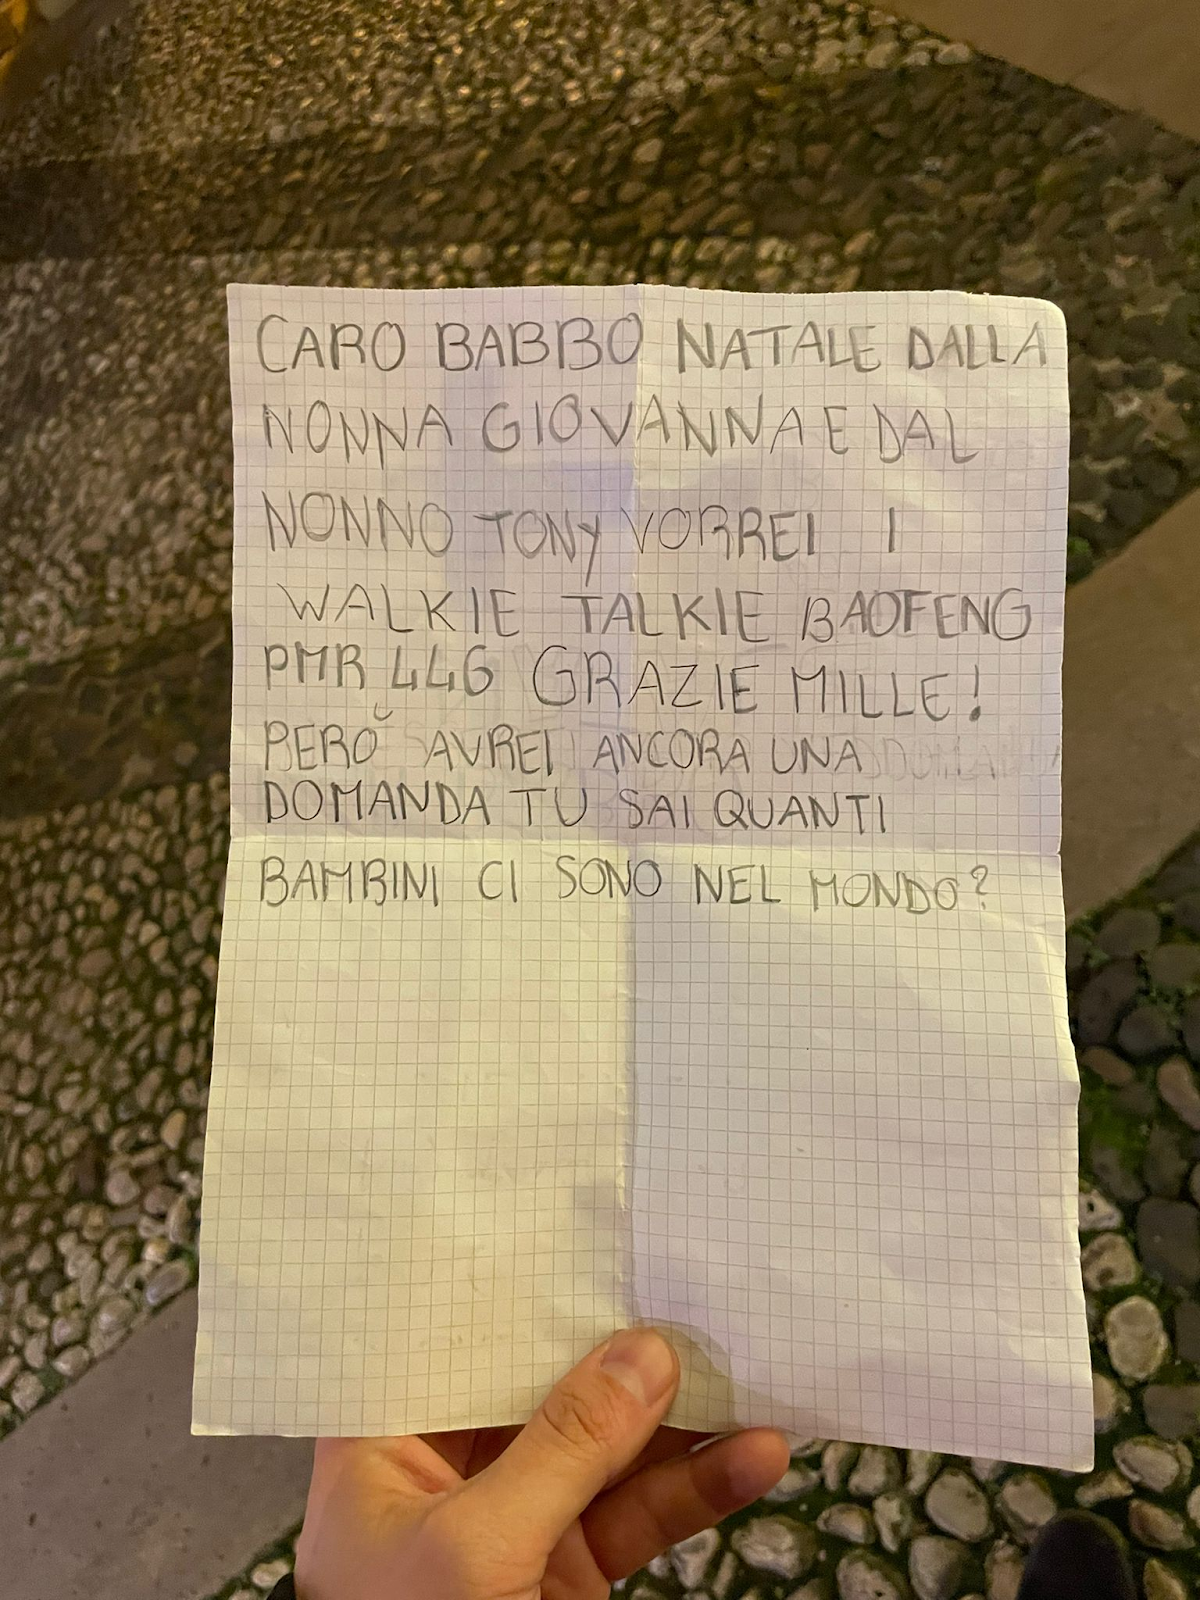 CARO BABBO NATALE DALLA
NONNA GIOVANNA E DAL
NONNO TONY VORREI I
WALKIE TALKIE BAOFENG
PMR 446 GRAZIE MILLE!
PERÒ AVREI ANCORA UNA
DOMANDA TU SAI QUANTI
BAMBINI CI SONO NEL MONDO?